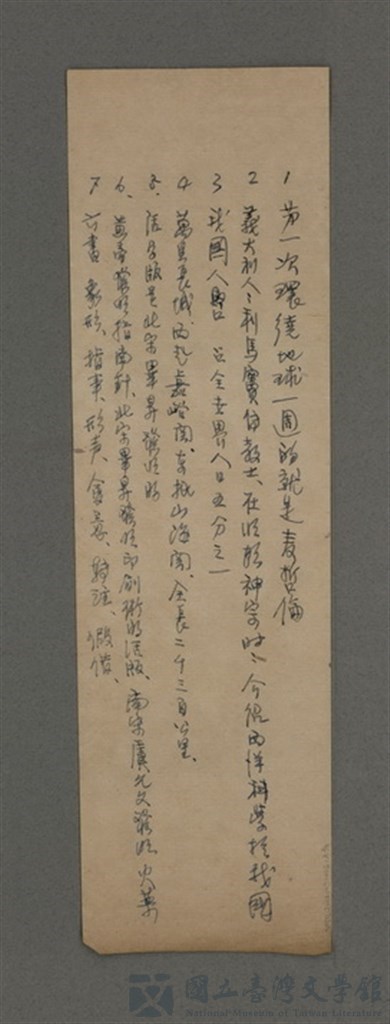 1 第一次環繞地球一週的就是麦哲倫
2 義大利人利馬竇傳教士、在明朝神宗時、介紹西洋科學於我國
3 我國人口 占全世界人口五分之一
4 萬里長城西起嘉峪関、東抵山海関、全長二千三百公里、
5、活字版是北宋畢昇發明的
6、黃帝發明指南針、北宋畢昇發明印刷術的活版、南宋虞允文發明火藥
7 六書 象形、指事、形声、會意、轉注、假借、
國立臺灣文學館
National Museum of Taiwan Literature